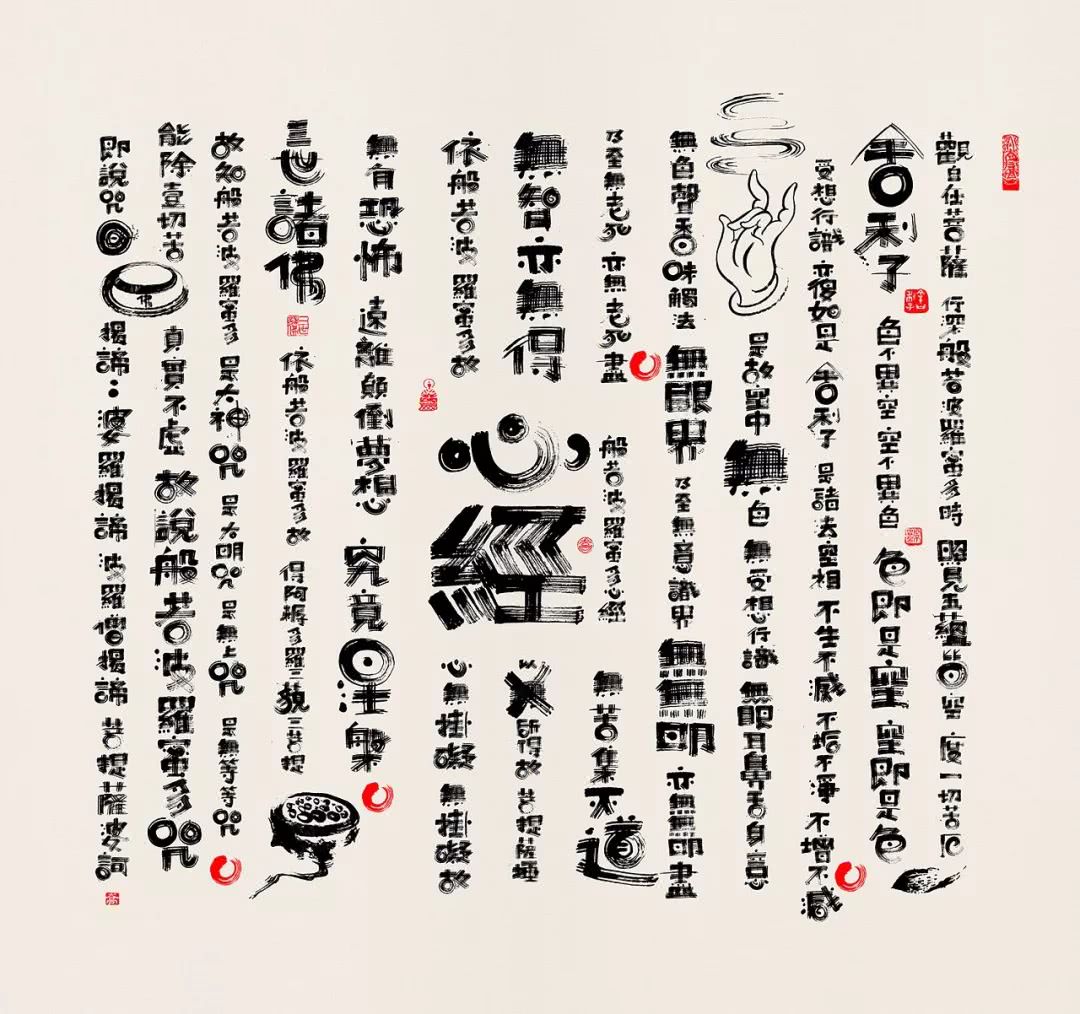 觀自在菩薩 行深般若波羅蜜多時 照見五蘊皆空 度一切苦厄
舍利子 色不異空 空不異色 色即是空 空即是色
受想行識 亦復如是 舍利子 是諸法空相 不生不滅 不垢不淨 不增不減
是故空中 無色 無受想行識 無眼耳鼻舌身意
無色聲香味觸法 無眼界 乃至無意識界 無無明 亦無無明盡
乃至無老死 亦無老死盡
般若波羅蜜多心經
無苦集滅道
無智亦無得
心經
所得故 菩提薩埵
依般若波羅蜜多故
心無掛礙 無掛礙故
無有恐怖 遠離顛倒夢想 究竟涅槃
三世諸佛 依般若波羅蜜多故 得阿耨多羅三藐三菩提
故知般若波羅蜜多 是大神咒 是大明咒 是無上咒 是無等等咒
能除壹切苦 真實不虛 故說般若波羅蜜多咒
即說咒曰 佛 揭諦：婆羅揭諦 波羅僧揭諦 菩提薩婆訶